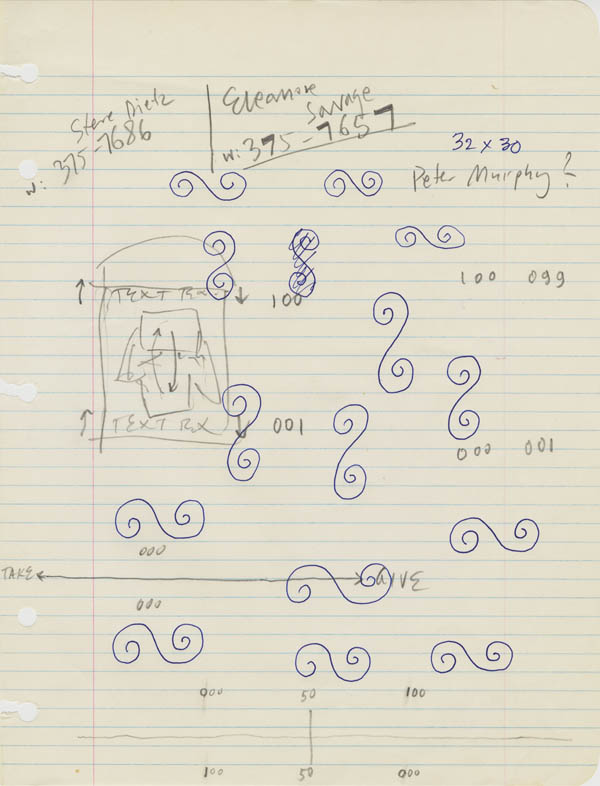 Steve Dietz
w: 375-7686
Eleanore
Savage
w: 375-7657
32 x 30
Peter Murphy?
100 099
TEXT
100
TEXT
001
000 001
000
TAKE GIVE
000
000 50 100
100 50 000